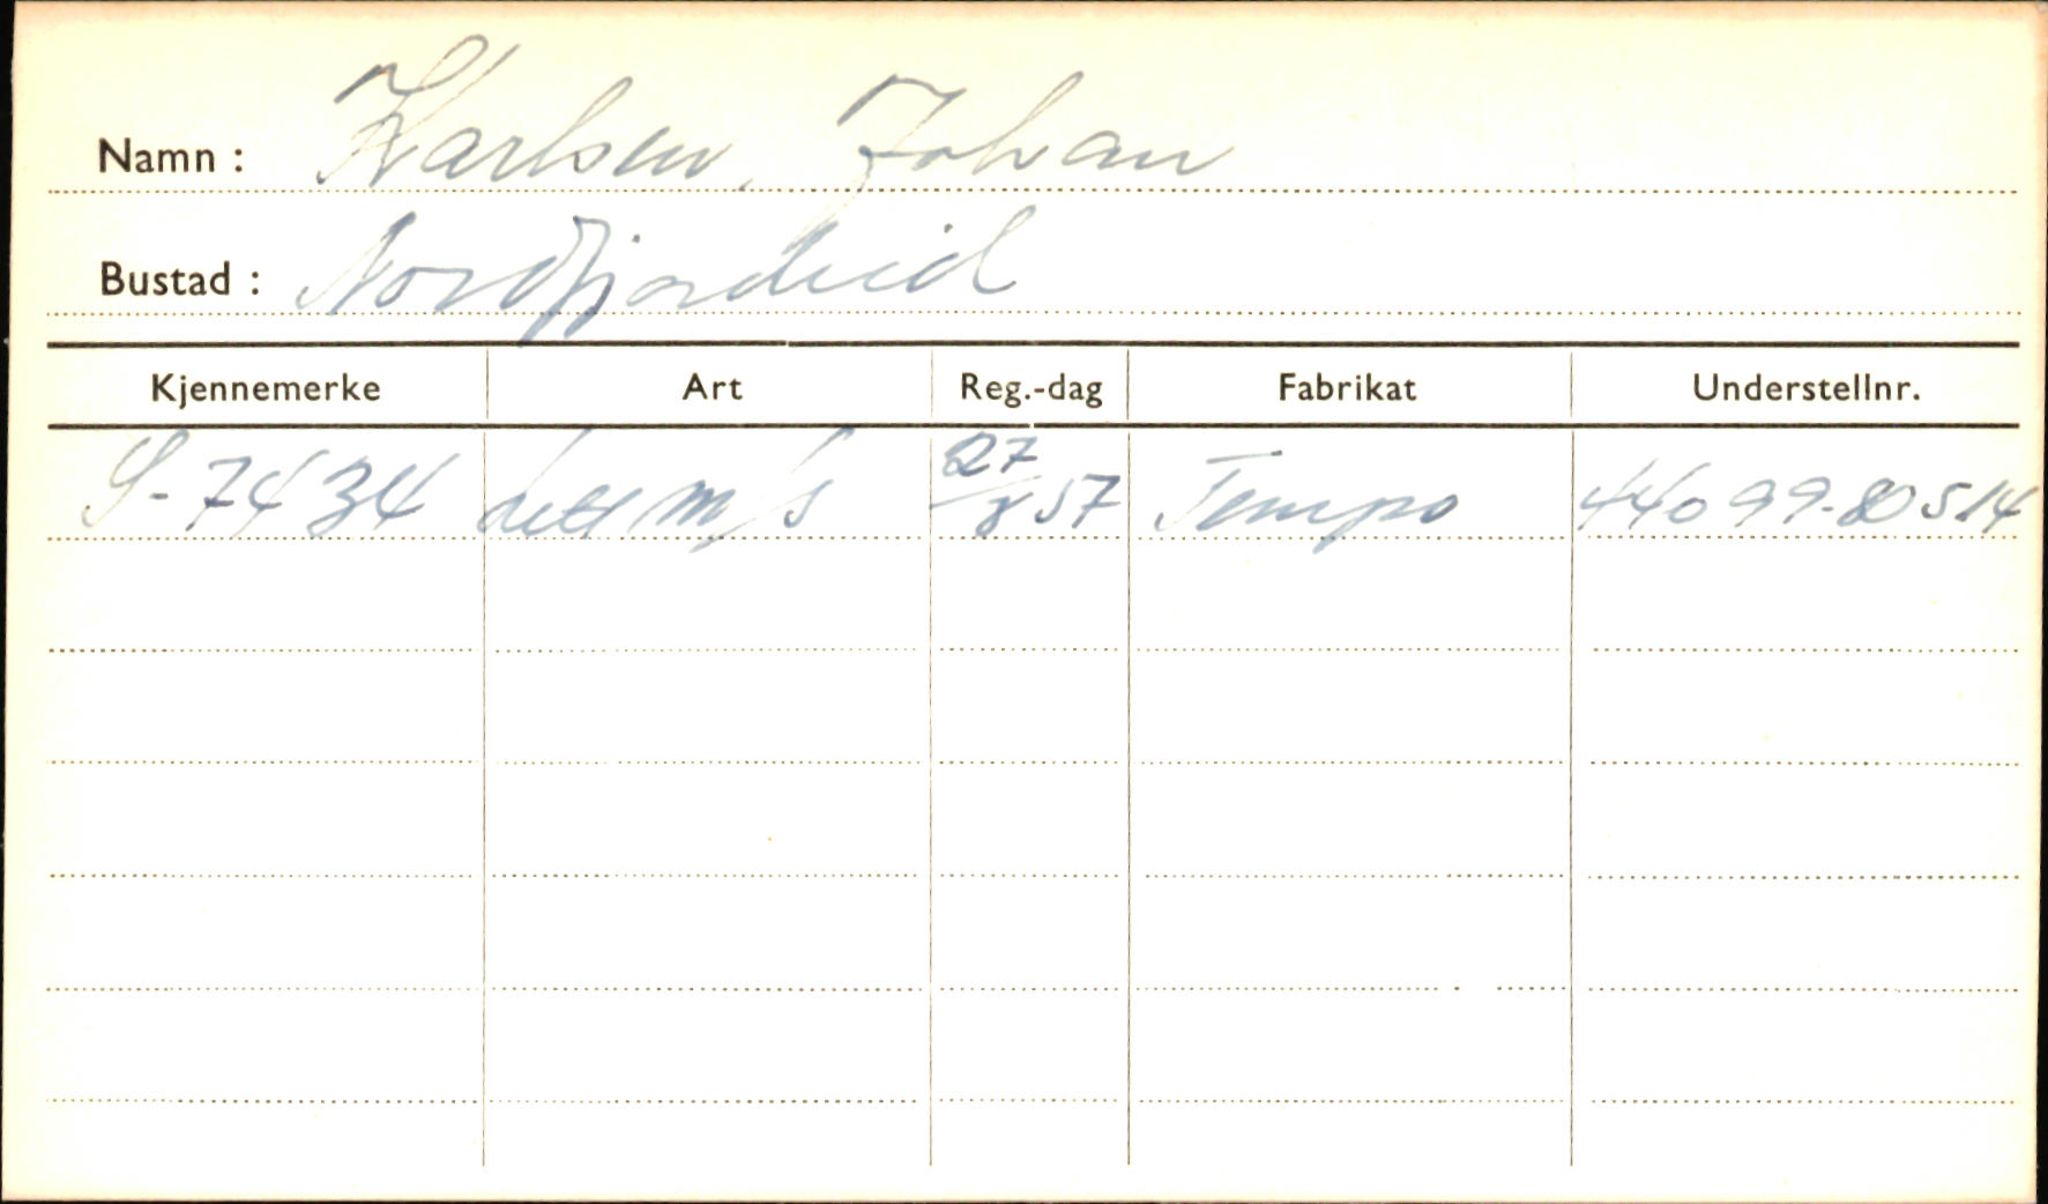 Namn : Karlsen, Johan
Bustad : Nordfjordeid
Kjennemerke Art Reg.-dag Fabrikat Understellnr.
S-7434 Lett m/s 27/8 57 Tempo 44099-80514